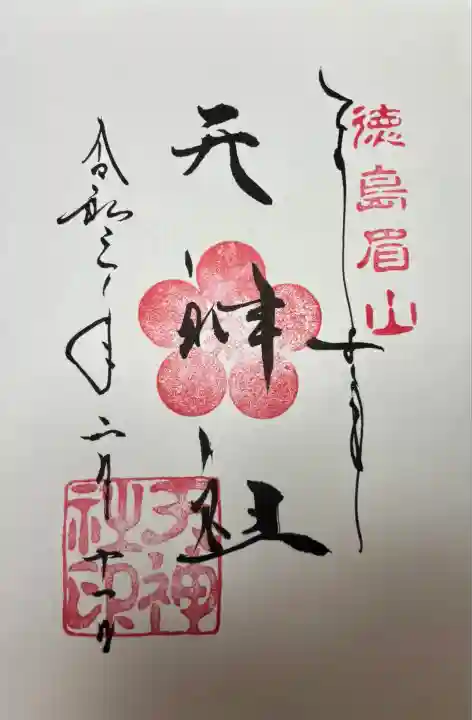 徳島眉山
奉拝
天神社
令和三年二月十一日
天神社印